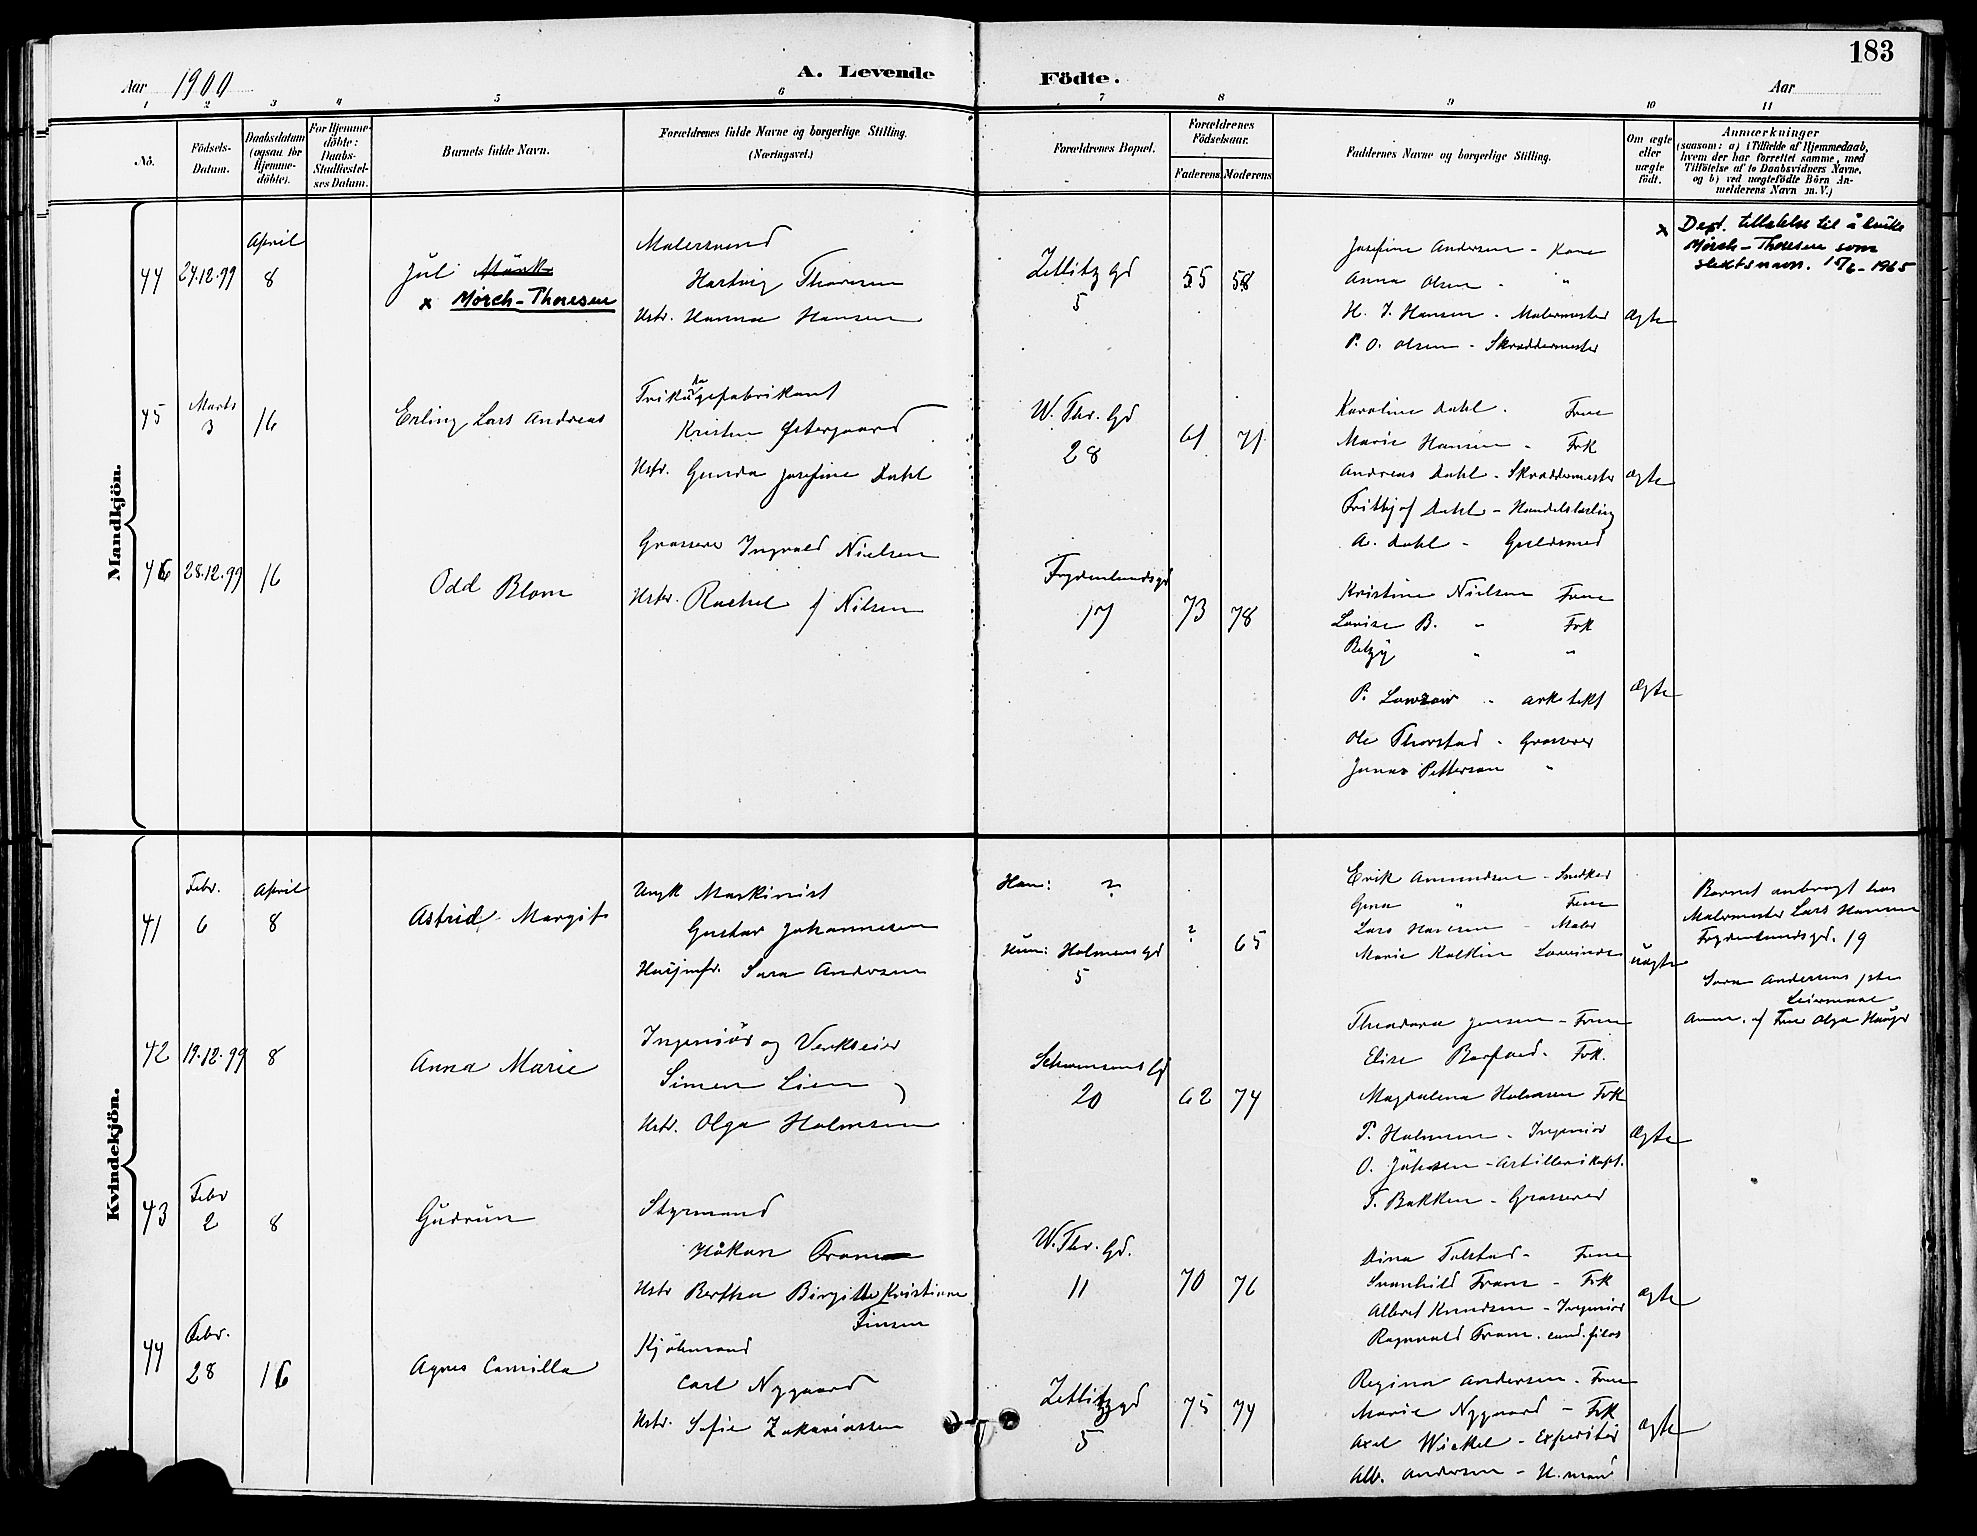 183
Aar 1900
A. Levende Födte.
Aar
1 2 3 4 5 6 7 8 9 10 11
No.
Födsels-Datum.
Daabsdatum (ogsaa for Hjemme-döbte).
For Hjemme-döbte: Daabs-Stadfæstel-ses Datum.
Barnets fulde Navn.
Forældrenes fulde Navne og borgerlige Stilling.
(Næringsvei.)
Forældrenes Bopæl.
Forældrenes Födselsaar.
Faderens Moderens
Faddernes Navne og borgerlige Stilling.
Om ægte eller uægte födt.
Anmærkninger
(saasom: a) i Tilfælde af Hjemmedaab,
hvem der har forrettet samme, med
Tilföielse af to Daabsvidners Navne,
og b) ved uægtefödte Börn An-
melderens Navn m. V.)
Mandkjön.
44
24.12.99
April
8
Jul
x Mørch-Thoresen
Malersvend
Hartvig Thoresen
Hstr. Hanna Hansen
Zetlitzgd
5
55
58
Josefine Andersen - Kone
Anna Olsen - "
H. J. Hansen - Malermester
P. O. Olsen - Skræddermester
Ægte
x Dept. tillatelse til å bruke
Mørch-Thoresen som
slektsnavn. 15/6-1965
45
Marts
3
16
Erling Lars Andreas
Trikotagefabrikant
Kristen Østergaard
Hstr. Gunda Josefine Dahl
W. Thr. Gd
28
61
71
Karoline Dahl - Frue
Marie Hansen - Frk
Andreas Dahl - Skræddermester
Fritjof Dahl - Handelslærling
A. Dahl - Guldsmed
ægte
46
28.12.99
16
Odd Blom
Grosserer Ingvald Nielsen
Hstr. Rachel f Nilsen
Frydenlundsgd
17
73
78
Kristine Nielsen Frue
Lovise B. " Frk
Betzy " "
P. Lowzow - arkitekt
Ole Thorstad - Grosserer
Jonas Petterson "
Ægte
Kvindekjön.
41
Febr.
6
April
8
Astrid Margit
Ungk Maskinist
Gustav Johannesen
Sara Andersen
Han: ?
Hun: Holmens Gd
5
?
65
Erik Amundsen - Snedker
Gina " Frue
Lars Hansen - Maler
Marie
uægte
Barnet anbragt hos
Malermester Lars Hansen
Frydenlundsgd. 19
Sara Andersens 1ste
Leiermaal
Anm. af Frue Olga
42
19.12.99
8
Anna Marie
Ingeniör og Verkseier
Simen Lien
Hstr. Olga Holmsen
Schwensens Gd
20
62
74
Theodora Jensen - Frue
Elise - Frk.
Magdalena Holmsen Frk
P. Holmsen - Ingeniör
O. - Artillerikapt.
T. Bakken - Grosserer
Ægte
43
Febr
2
8
Gudrun
Styrmand
Håkon Fram
Hstr Bertha Birgitte Kristiane
Finsen
W. Thr. Gd.
11
70
76
Dina Tolstad - Frue
Svanhild Fram - Frk
Albert Knudsen - Ingeniör
Ragnvald Fram. cand. filos
ægte
44
Febr.
28
16
Agnes Camilla
Kjöbmand
Carl Nygaard
Hstr. Sofie Zakariassen
Zetlitzgd
5
75
74
Regina Andersen - Frue
Marie Nygaard - Frk
Axel - Expeditör
Alb. Andersen - H.mand
ægte